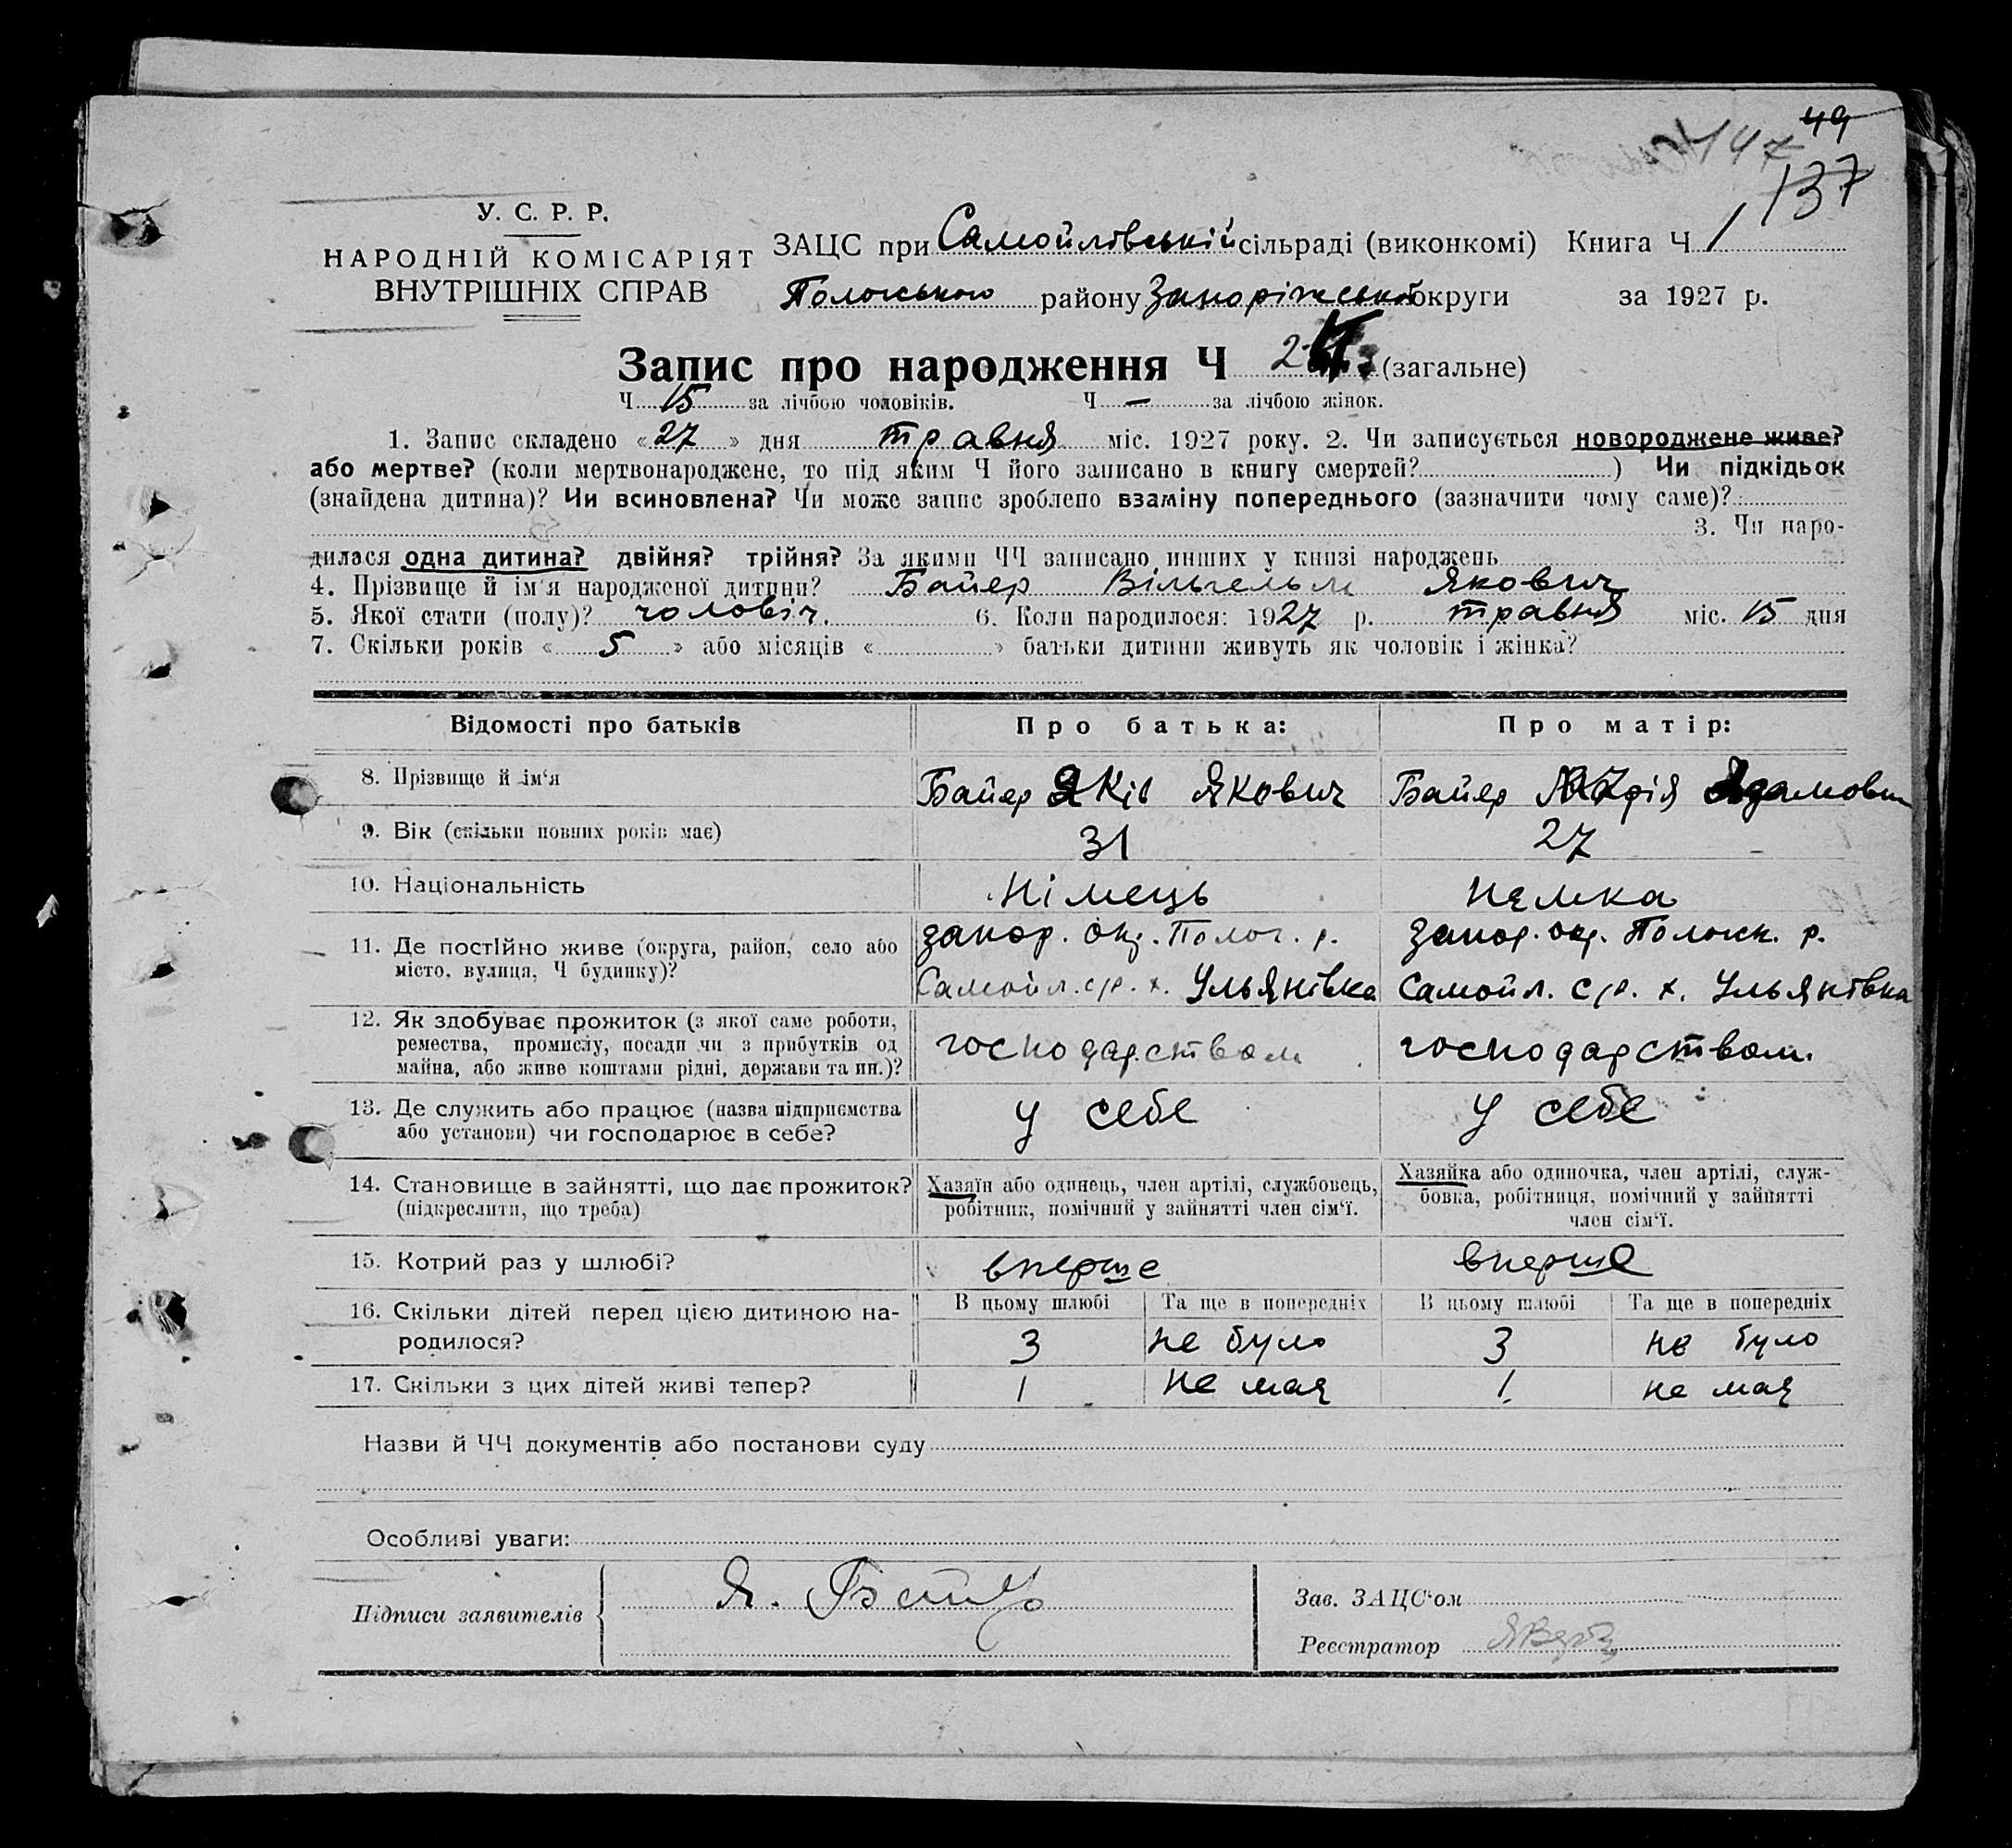 49
147
137
У. С. Р. Р.
НАРОДНІЙ КОМІСАРІЯТ
ВНУТРІШНІХ СПРАВ
ЗАЦС при Самойлівській сільраді (виконкомі) Книга Ч 1
Пологського району Запоріжської округи за 1927 р.
Запис про народження Ч (загальне)
Ч 15 за лічбою чоловіків. Ч — за лічбою жінок.
1. Запис складено «27» дня травня міс. 1927 року. 2. Чи записується новороджене живе?
або мертве? (коли мертвонароджене, то під яким Ч його записано в книгу смертей? ) Чи підкідьок
(знайдена дитина)? Чи всиновлена? Чи може запис зроблено взаміну попереднього (зазначити чому саме)?
3. Чи наро-
дилася одна дитина? двійня? трійня? За якими ЧЧ записано инших у книзі народжень
4. Прізвище й ім'я народженої дитини? Байер Вільгельм Якович
5. Якої стати (полу)? чоловіч. 6. Коли народилося: 1927 р. травня міс. 15 дня
7. Скільки років «5» або місяців « » батьки дитини живуть як чоловік і жінка?
Відомості про батьків Про батька: Про матір:
8. Прізвище й ім'я Байер Яків Якович Байер Марія Адамовн
9. Вік (скільки повних років має) 31 27
10. Національність Німець Немка
11. Де постійно живе (округа, район, село або запор. окр. Полог. р. Запор. окр. Пологск. р.
місто, вулиця, Ч будинку)? Самойл. с/р. х. Ульянівка Самойл. с/р. х. Ульянівка
12. Як здобуває прожиток (з якої саме роботи,
ремества, промислу, посади чи з прибутків од господарством господарством.
майна, або живе коштами рідні, держави та ин.)?
13. Де служить або працює (назва підприємства у себе у себе
або установи) чи господарює в себе?
14. Становище в зайнятті, що дає прожиток? Хазяїн або одинець, член артілі, службовець, Хазяйка або одиночка, член артілі, служ-
(підкреслити, що треба) робітник, помічний у зайнятті член сім'ї. бовка, робітниця, помічний у зайнятті
член сім'ї.
15. Котрий раз у шлюбі? вперше вперше
16. Скільки дітей перед цією дитиною на- В цьому шлюбі Та ще в попередніх В цьому шлюбі Та ще в попередніх
родилося? 3 не було 3 не було
17. Скільки з цих дітей живі тепер? 1 не мая 1 не мая
Назви й ЧЧ документів або постанови суду
Особливі уваги:
Підписи заявителів Я. Зав. ЗАЦС'ом
Реєстратор